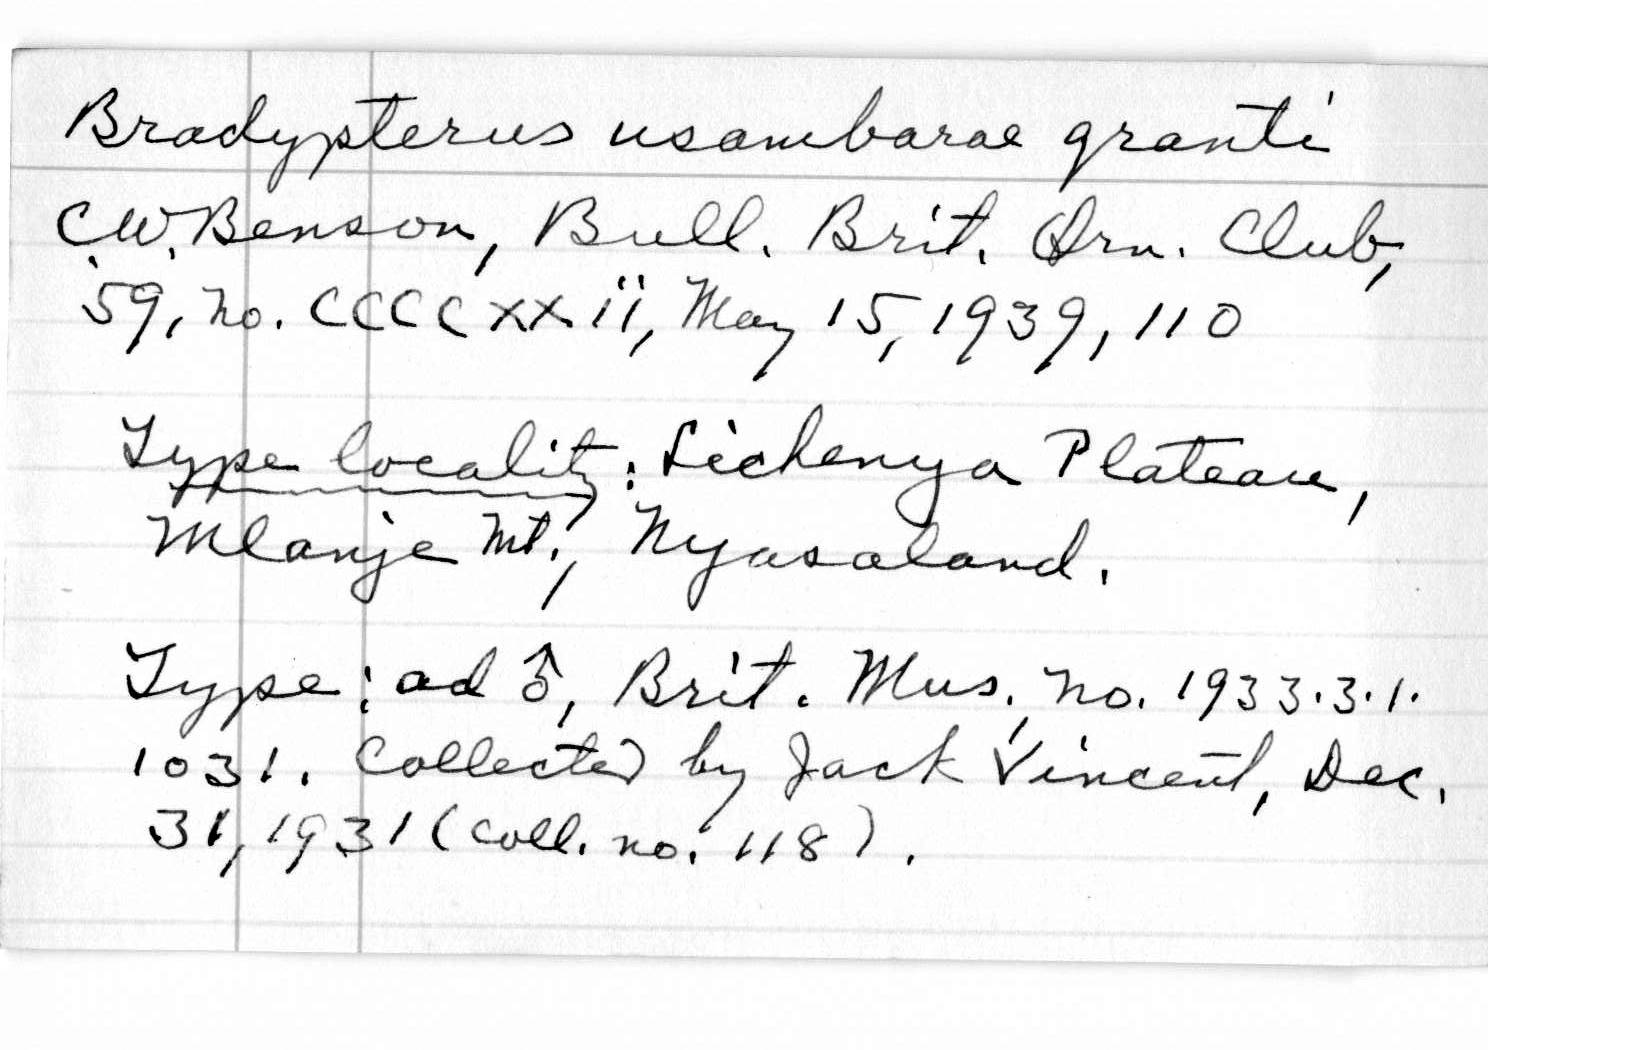 Bradypterus usambarae granti
C.W. Benson, Bull. Brit. Orn. Club,
59, no. CCCCXXii, May 15, 1939, 110
Type locality: Lichenya Plateau,
Mlanje Mt., Nyasaland.
Type: ad ♂, Brit. Mus. no. 1933.3.1.
1031. Collected by Jack Vincent, Dec.
31, 1931 (coll. no. 118).